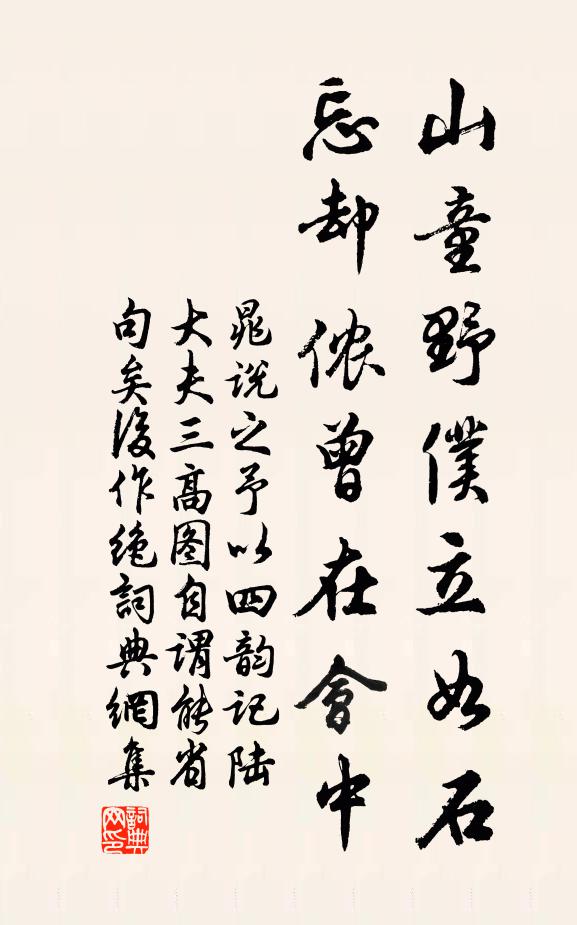 山童野僕立如石
忘却侬曾在會中
晁说之予以四韵记陆
大夫三高图自谓能省
句矣後作絶詞典網集
詞典網印